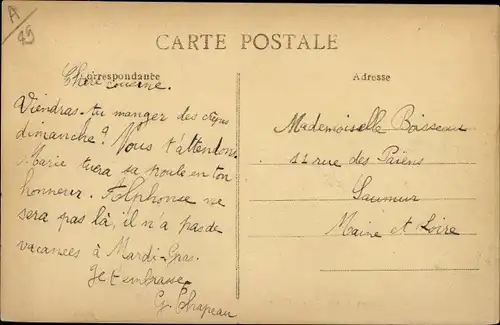 A
45
CARTE POSTALE
Correspondance
Chère cousine.
Viendras-tu manger des crêpes
dimanche? Nous t'attendons
Marie tuera sa poule en ton
honneur. Alphonse ne
sera pas là, il n'a pas de
vacances à Mardi-Gras.
Je t'embrasse
G. Chapeau
Adresse
Mademoiselle Boisseau
11 rue des Païens
Saumur
Maine et Loire